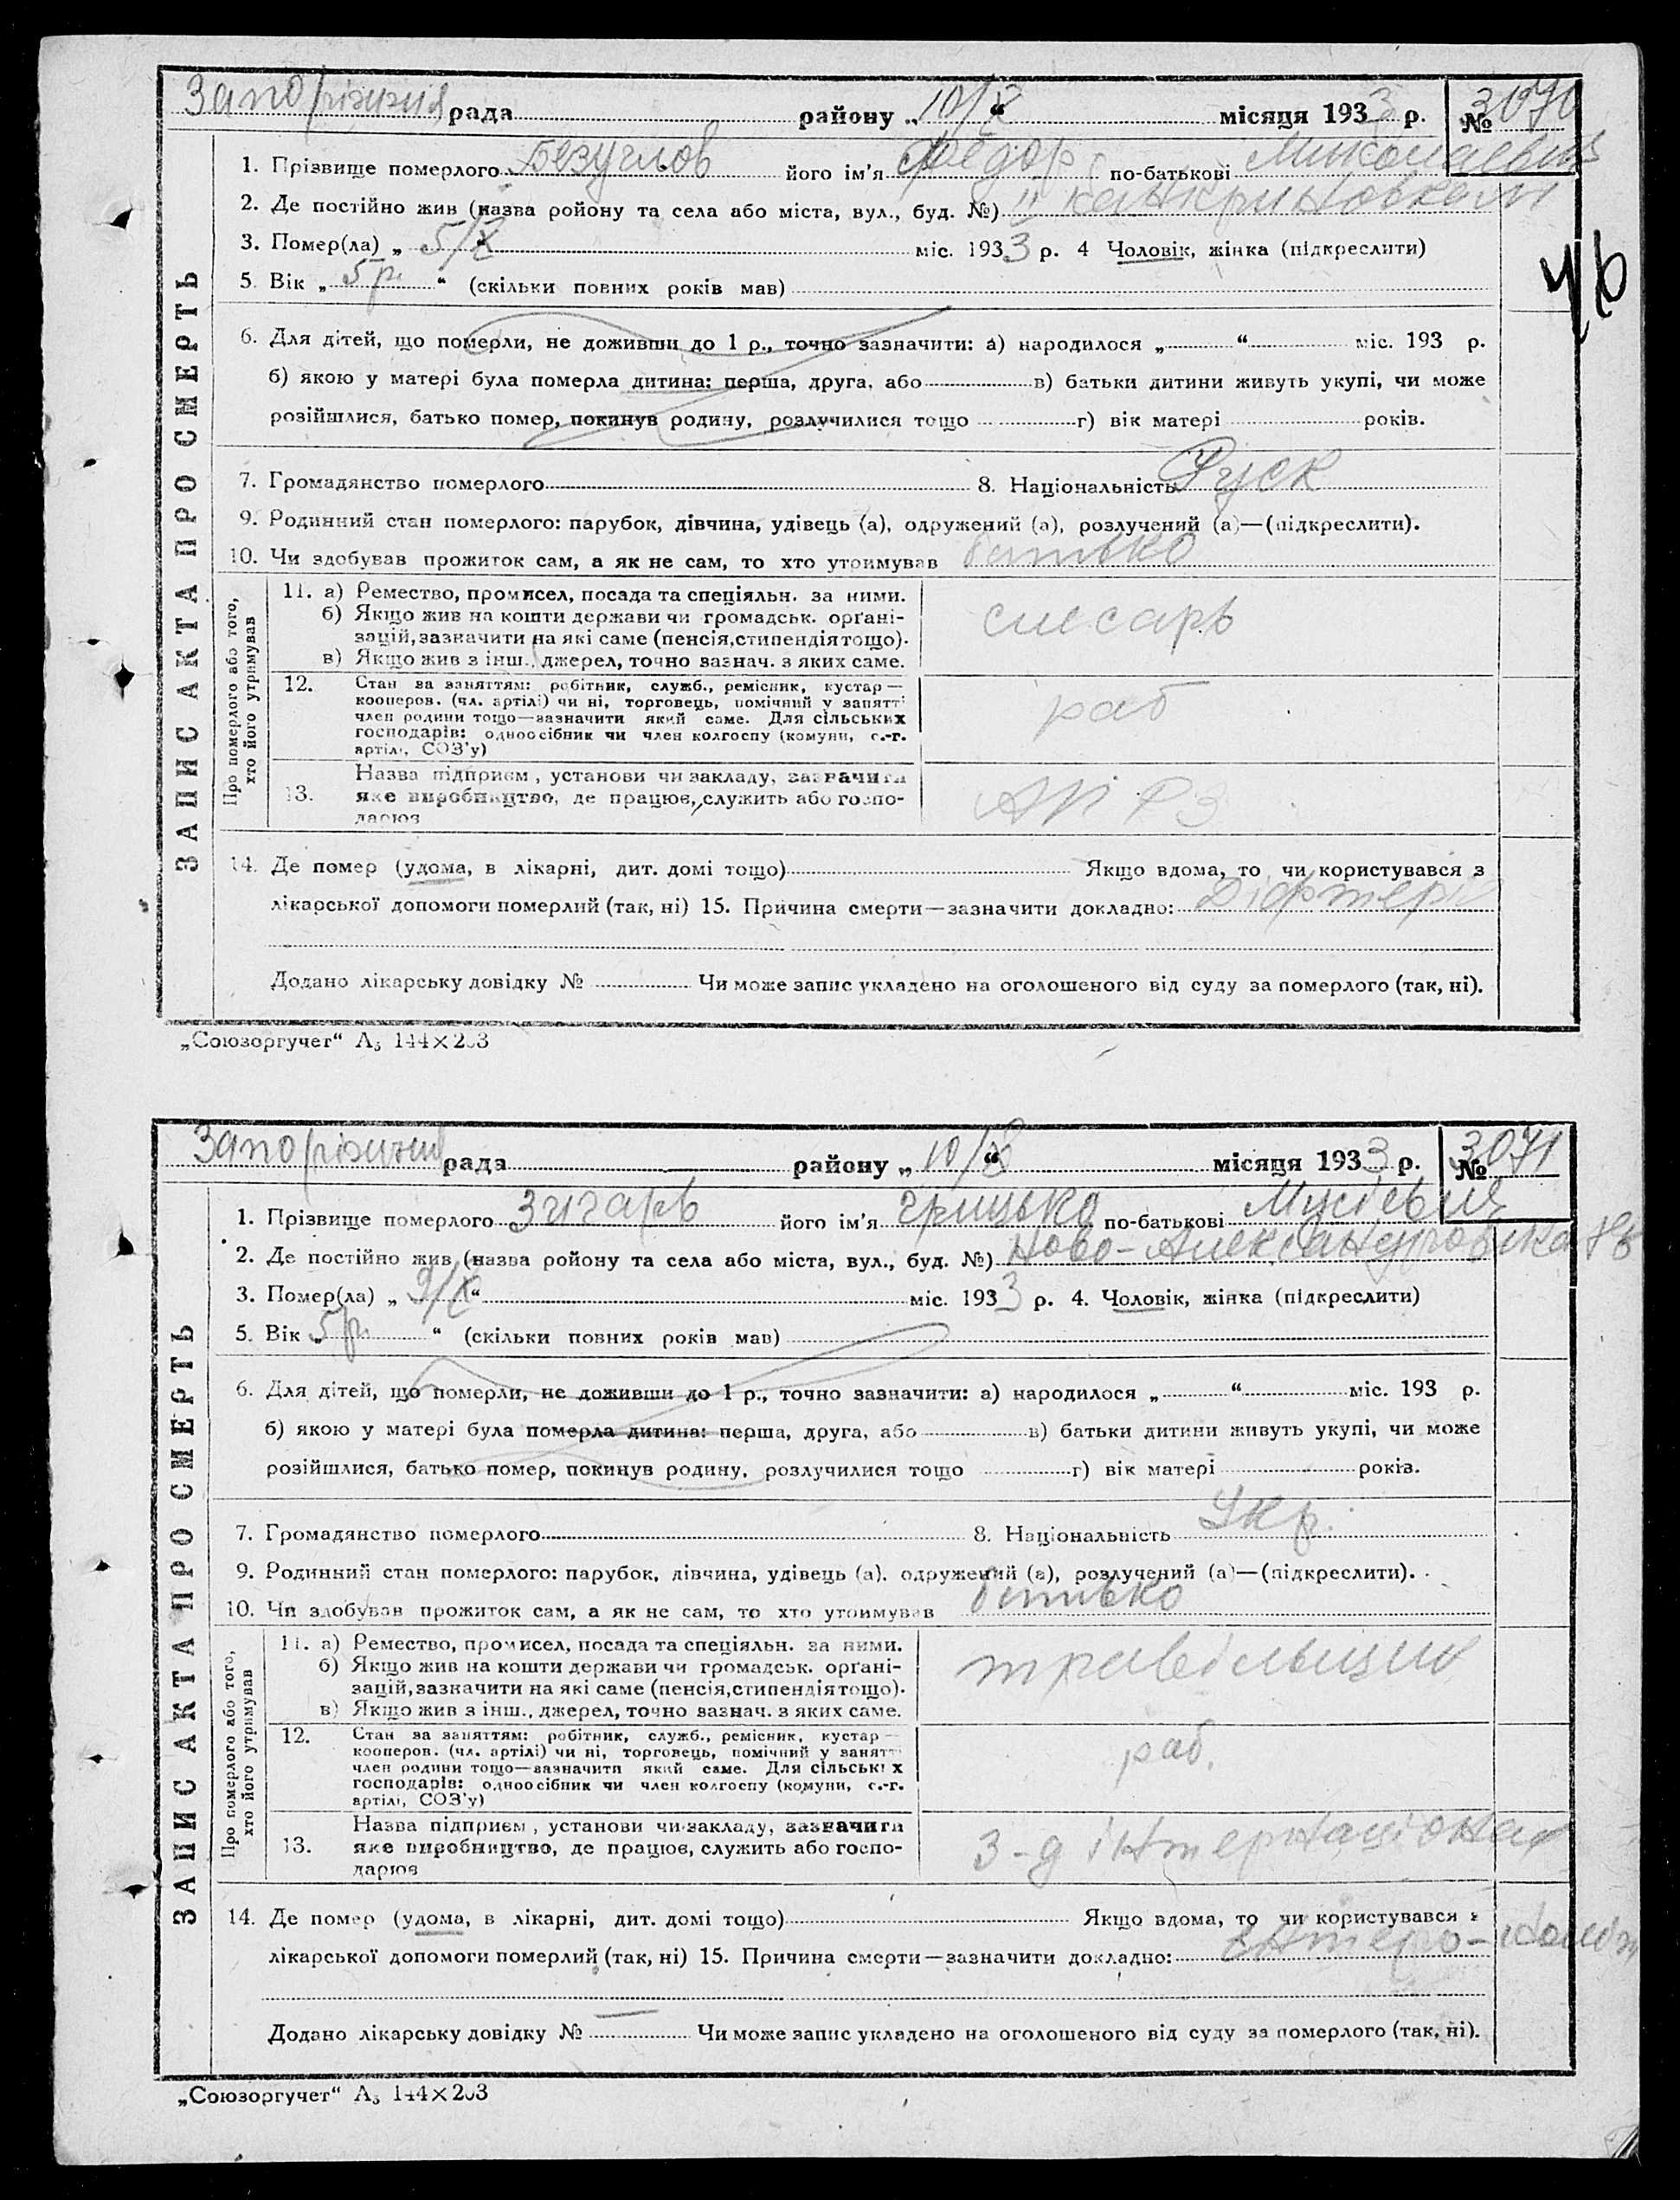 Запоріжжя рада району „10/X“ місяця 1933 р. № 3070
1. Прізвище померлого Безуглов його ім'я Федор по-батькові Миколаевич
2. Де постійно жив (назва ройону та села або міста, вул., буд. №)
3. Помер(ла) „ 5/X “ міс. 1933 р. 4 Чоловік, жінка (підкреслити)
5. Вік „ 5 р. “ (скільки повних років мав)
46
6. Для дітей, що померли, не доживши до 1 р., точно зазначити: а) народилося „ “ міс. 193 р.
б) якою у матері була померла дитина: перша, друга, або в) батьки дитини живуть укупі, чи може
розійшлися, батько помер, покинув родину, розлучилися тощо г) вік матері років.
7. Громадянство померлого 8. Національність Руск
9. Родинний стан померлого: парубок, дівчина, удівець (а), одружений (а), розлучений (а)—(підкреслити).
10. Чи здобував прожиток сам, а як не сам, то хто утримував батько
ЗАПИС АКТА ПРО СМЕРТЬ
Про померлого або того,
хто його утримував
11. а) Ремество, промисел, посада та спеціяльн. за ними.
б) Якщо жив на кошти держави чи громадськ. орґані-
зацій, зазначити на які саме (пенсія, стипендія тощо).
в) Якщо жив з інш., джерел, точно зазнач. з яких саме.
слесарь
12. Стан за заняттям: робітник, служб., ремісник, кустар —
кооперов. (чл. артілі) чи ні, торговець, помічний у занятті
член родини тощо—зазначити який саме. Для сільських
господарів: одноосібник чи член колгоспу (комуни, с.-г.
артілі, СОЗ'у)
раб
13. Назва підприєм, установи чи закладу, зазначити
яке виробництво, де працює, служить або госпо-
дарює
14. Де помер (удома, в лікарні, дит. домі тощо) Якщо вдома, то чи користувався з
лікарської допомоги померлий (так, ні) 15. Причина смерти—зазначити докладно: Діфтерія
Додано лікарську довідку № Чи може запис укладено на оголошеного від суду за померлого (так, ні).
„Союзоргучет“ А₅ 144×203
Запоріжжя рада району „10/X“ місяця 1933 р. № 3071
1. Прізвище померлого Зигарь його ім'я Грицько по-батькові Мусієвич
2. Де постійно жив (назва ройону та села або міста, вул., буд. №) Ново-Александровка
3. Помер(ла) „ 9/X “ міс. 1933 р. 4. Чоловік, жінка (підкреслити)
5. Вік „ 5 р. “ (скільки повних років мав)
6. Для дітей, що померли, не доживши до 1 р., точно зазначити: а) народилося „ “ міс. 193 р.
б) якою у матері була померла дитина: перша, друга, або в) батьки дитини живуть укупі, чи може
розійшлися, батько помер, покинув родину, розлучилися тощо г) вік матері років.
7. Громадянство померлого 8. Національність Укр.
9. Родинний стан померлого: парубок, дівчина, удівець (а), одружений (а), розлучений (а)—(підкреслити).
10. Чи здобував прожиток сам, а як не сам, то хто утримував батько
ЗАПИС АКТА ПРО СМЕРТЬ
Про померлого або того,
хто його утримував
11. а) Ремество, промисел, посада та спеціяльн. за ними.
б) Якщо жив на кошти держави чи громадськ. орґані-
зацій, зазначити на які саме (пенсія, стипендія тощо).
в) Якщо жив з інш., джерел, точно зазнач. з яких саме.
12. Стан за заняттям: робітник, служб., ремісник, кустар —
кооперов. (чл. артілі) чи ні, торговець, помічний у занятті
член родини тощо—зазначити який саме. Для сільських
господарів: одноосібник чи член колгоспу (комуни, с.-г.
артілі, СОЗ'у)
раб.
13. Назва підприєм, установи чи закладу, зазначити
яке виробництво, де працює, служить або госпо-
дарює
з-д інтернаціонал
14. Де помер (удома, в лікарні, дит. домі тощо) Якщо вдома, то чи користувався з
лікарської допомоги померлий (так, ні) 15. Причина смерти—зазначити докладно: Ентеро-коліт
Додано лікарську довідку № — Чи може запис укладено на оголошеного від суду за померлого (так, ні).
„Союзоргучет“ А₅ 144×203